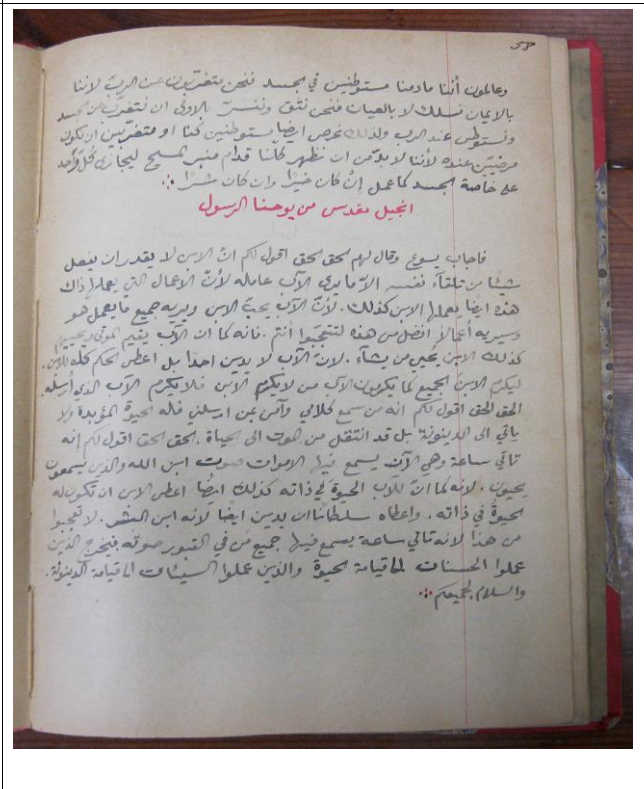 58
وعالمون أننا مادمنا مستوطنين في الجسد فنحن متغربون عن الرب لاننا
بالايمان نسلك لا بالعيان فنحن نثق ونسرّ بالاولى ان نتغرّب من الجسد
ونستوطن عند الرب ولذلك نحرص ايضا مستوطنين كنا او متغربين ان نكون
مرضيين عنده لأننا لا بدّ من ان نظهر كلنا قدام منبر المسيح ليجازى كل واحد
على خاصة الجسد كما عمل إن كان خيرًا وان كان شرًا
انجيل مقدس من يوحنا الرسول
فاجاب يسوع وقال لهم الحق الحق اقول لكم انّ الابن لا يقدر ان يفعل
شيئًا من تلقآء نفسه الاّ ما يرى الآب عامله لأنّ الاعمال التي يعملها ذاك
هذه ايضًا يعملها الابن كذلك. لأنّ الآب يحبّ الابن ويريه جميع ما يعمل هو
وسيريه أعمالاً افضل من هذه لتتعجّبوا انتم. فانه كما ان الآب يقيم الموتى ويحييهم
كذلك الابن يحيي من يشآء. لانّ الآب لا يدين احدًا بل اعطى الحكم كله للابن.
ليكرم الابن الجميع كما يكرمون الآب من لا يكرم الابن فلا يكرم الآب الذي أرسله
الحق الحق اقول لكم انه من سمع كلامي وآمن بمن ارسلني فله الحيوة المؤبدة ولا
ياتي الى الدينونة بل قد انتقل من الموت الى الحياة. الحق الحق اقول لكم إنه
تاتي ساعة وهي الآن يسمع فيها الاموات صوت ابن الله والذين يسمعون
يحيون. لانه كما انّ للآب الحيوة في ذاته كذلك ايضًا اعطى الابن ان تكون له
الحيوة في ذاته. واعطاه سلطانًا ان يدين ايضًا لانه ابن البشر. لا تعجبوا
من هذا لانه تاتي ساعة يسمع فيها جميع من في القبور صوته فيخرج الذين
عملوا الحسنات الى قيامة الحيوة والذين عملوا السيئات الى قيامة الدينونة.
والسلام لجميعكم